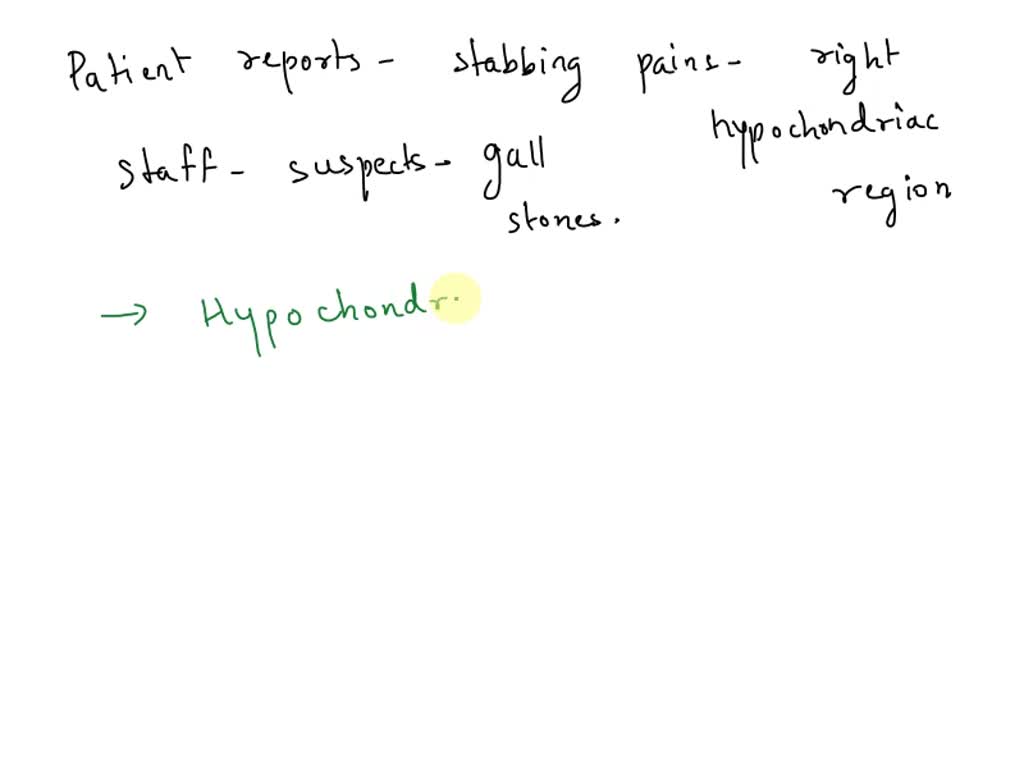 Patient reports - stabbing pains - right
hypochondriac
staff - suspects - gall
region
stones.
→ Hypochondr